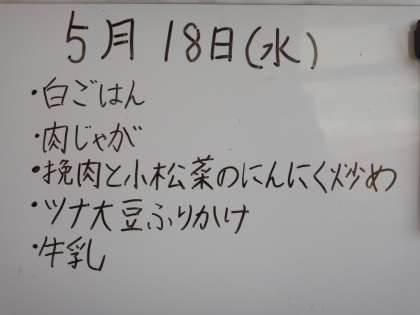 5月18日(水)
・白ごはん
・肉じゃが
・挽肉と小松菜のにんにく炒め
・ツナ大豆ふりかけ
・牛乳